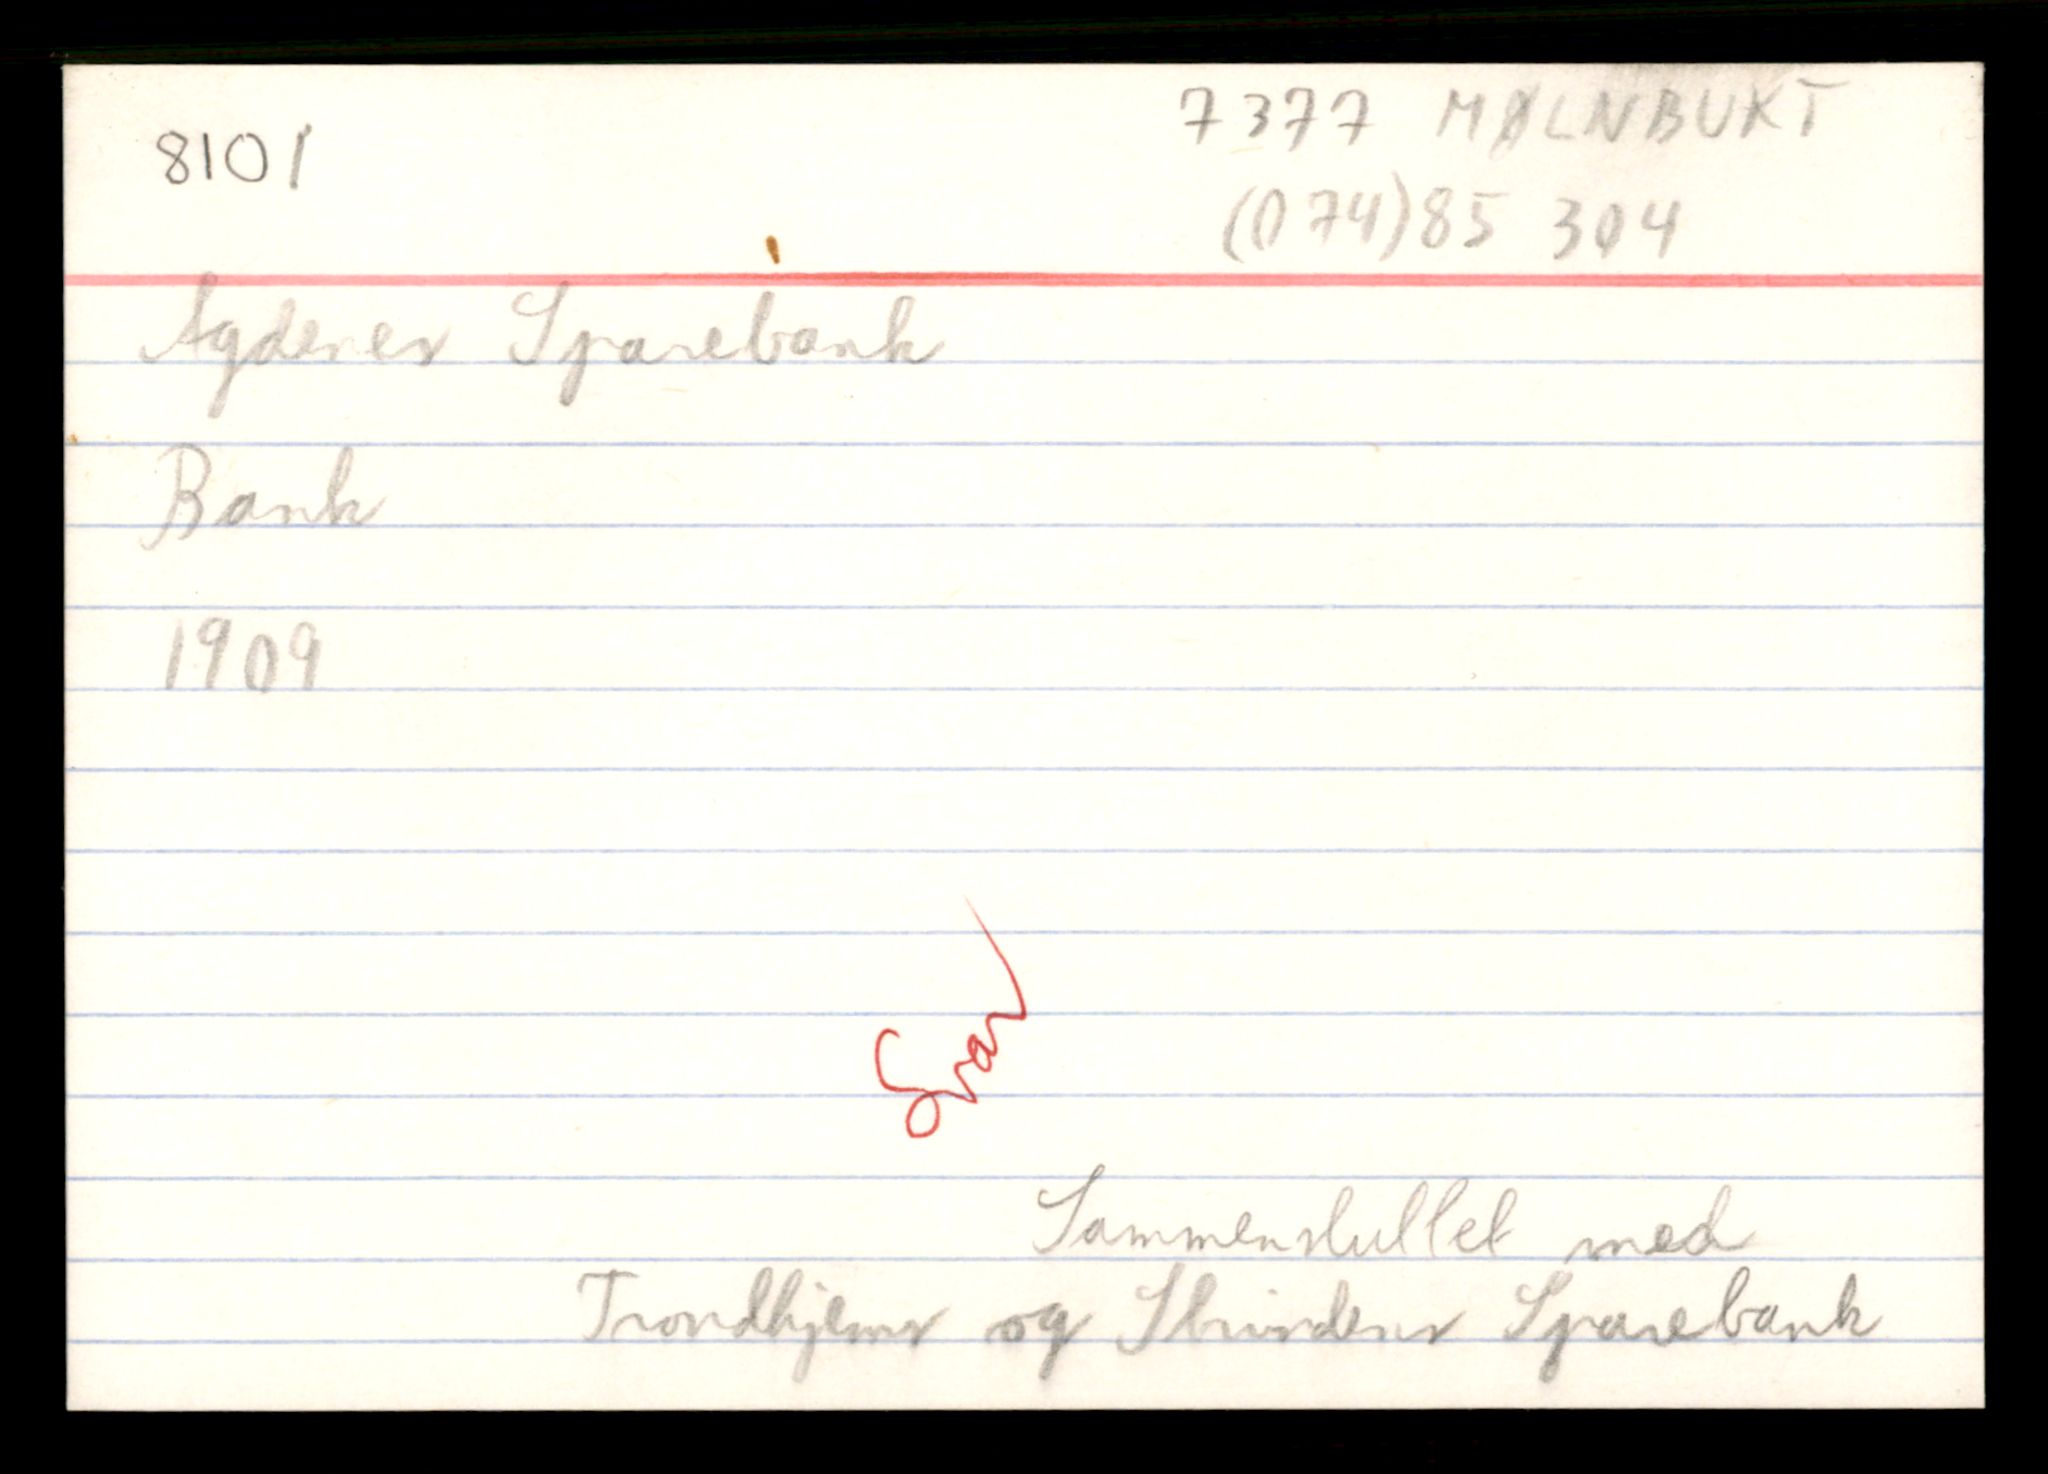 8101
7377 MØLNBUKT
(074)85 304
Agdenes Sparebank
Bank
1909
Svar
Sammensluttet med
Trondhjems og Strindens Sparebank